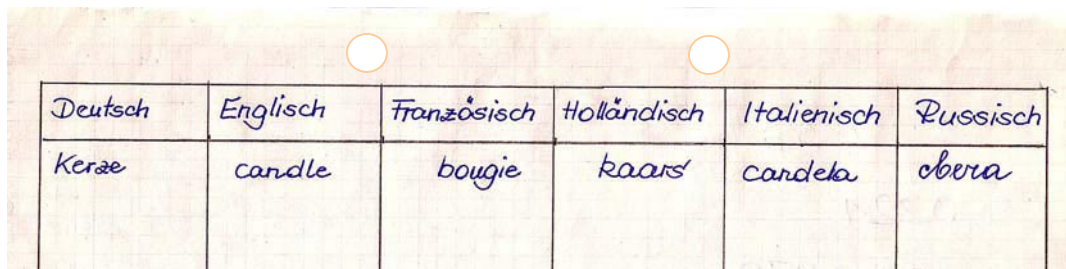 Deutsch Englisch Französisch Holländisch Italienisch Russisch
Kerze candle bougie kaars candela свеча